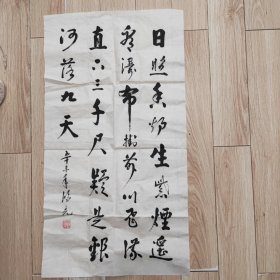 日照香炉生紫煙遥
看瀑布掛前川飛流
直下三千尺疑是銀
河落九天
辛未